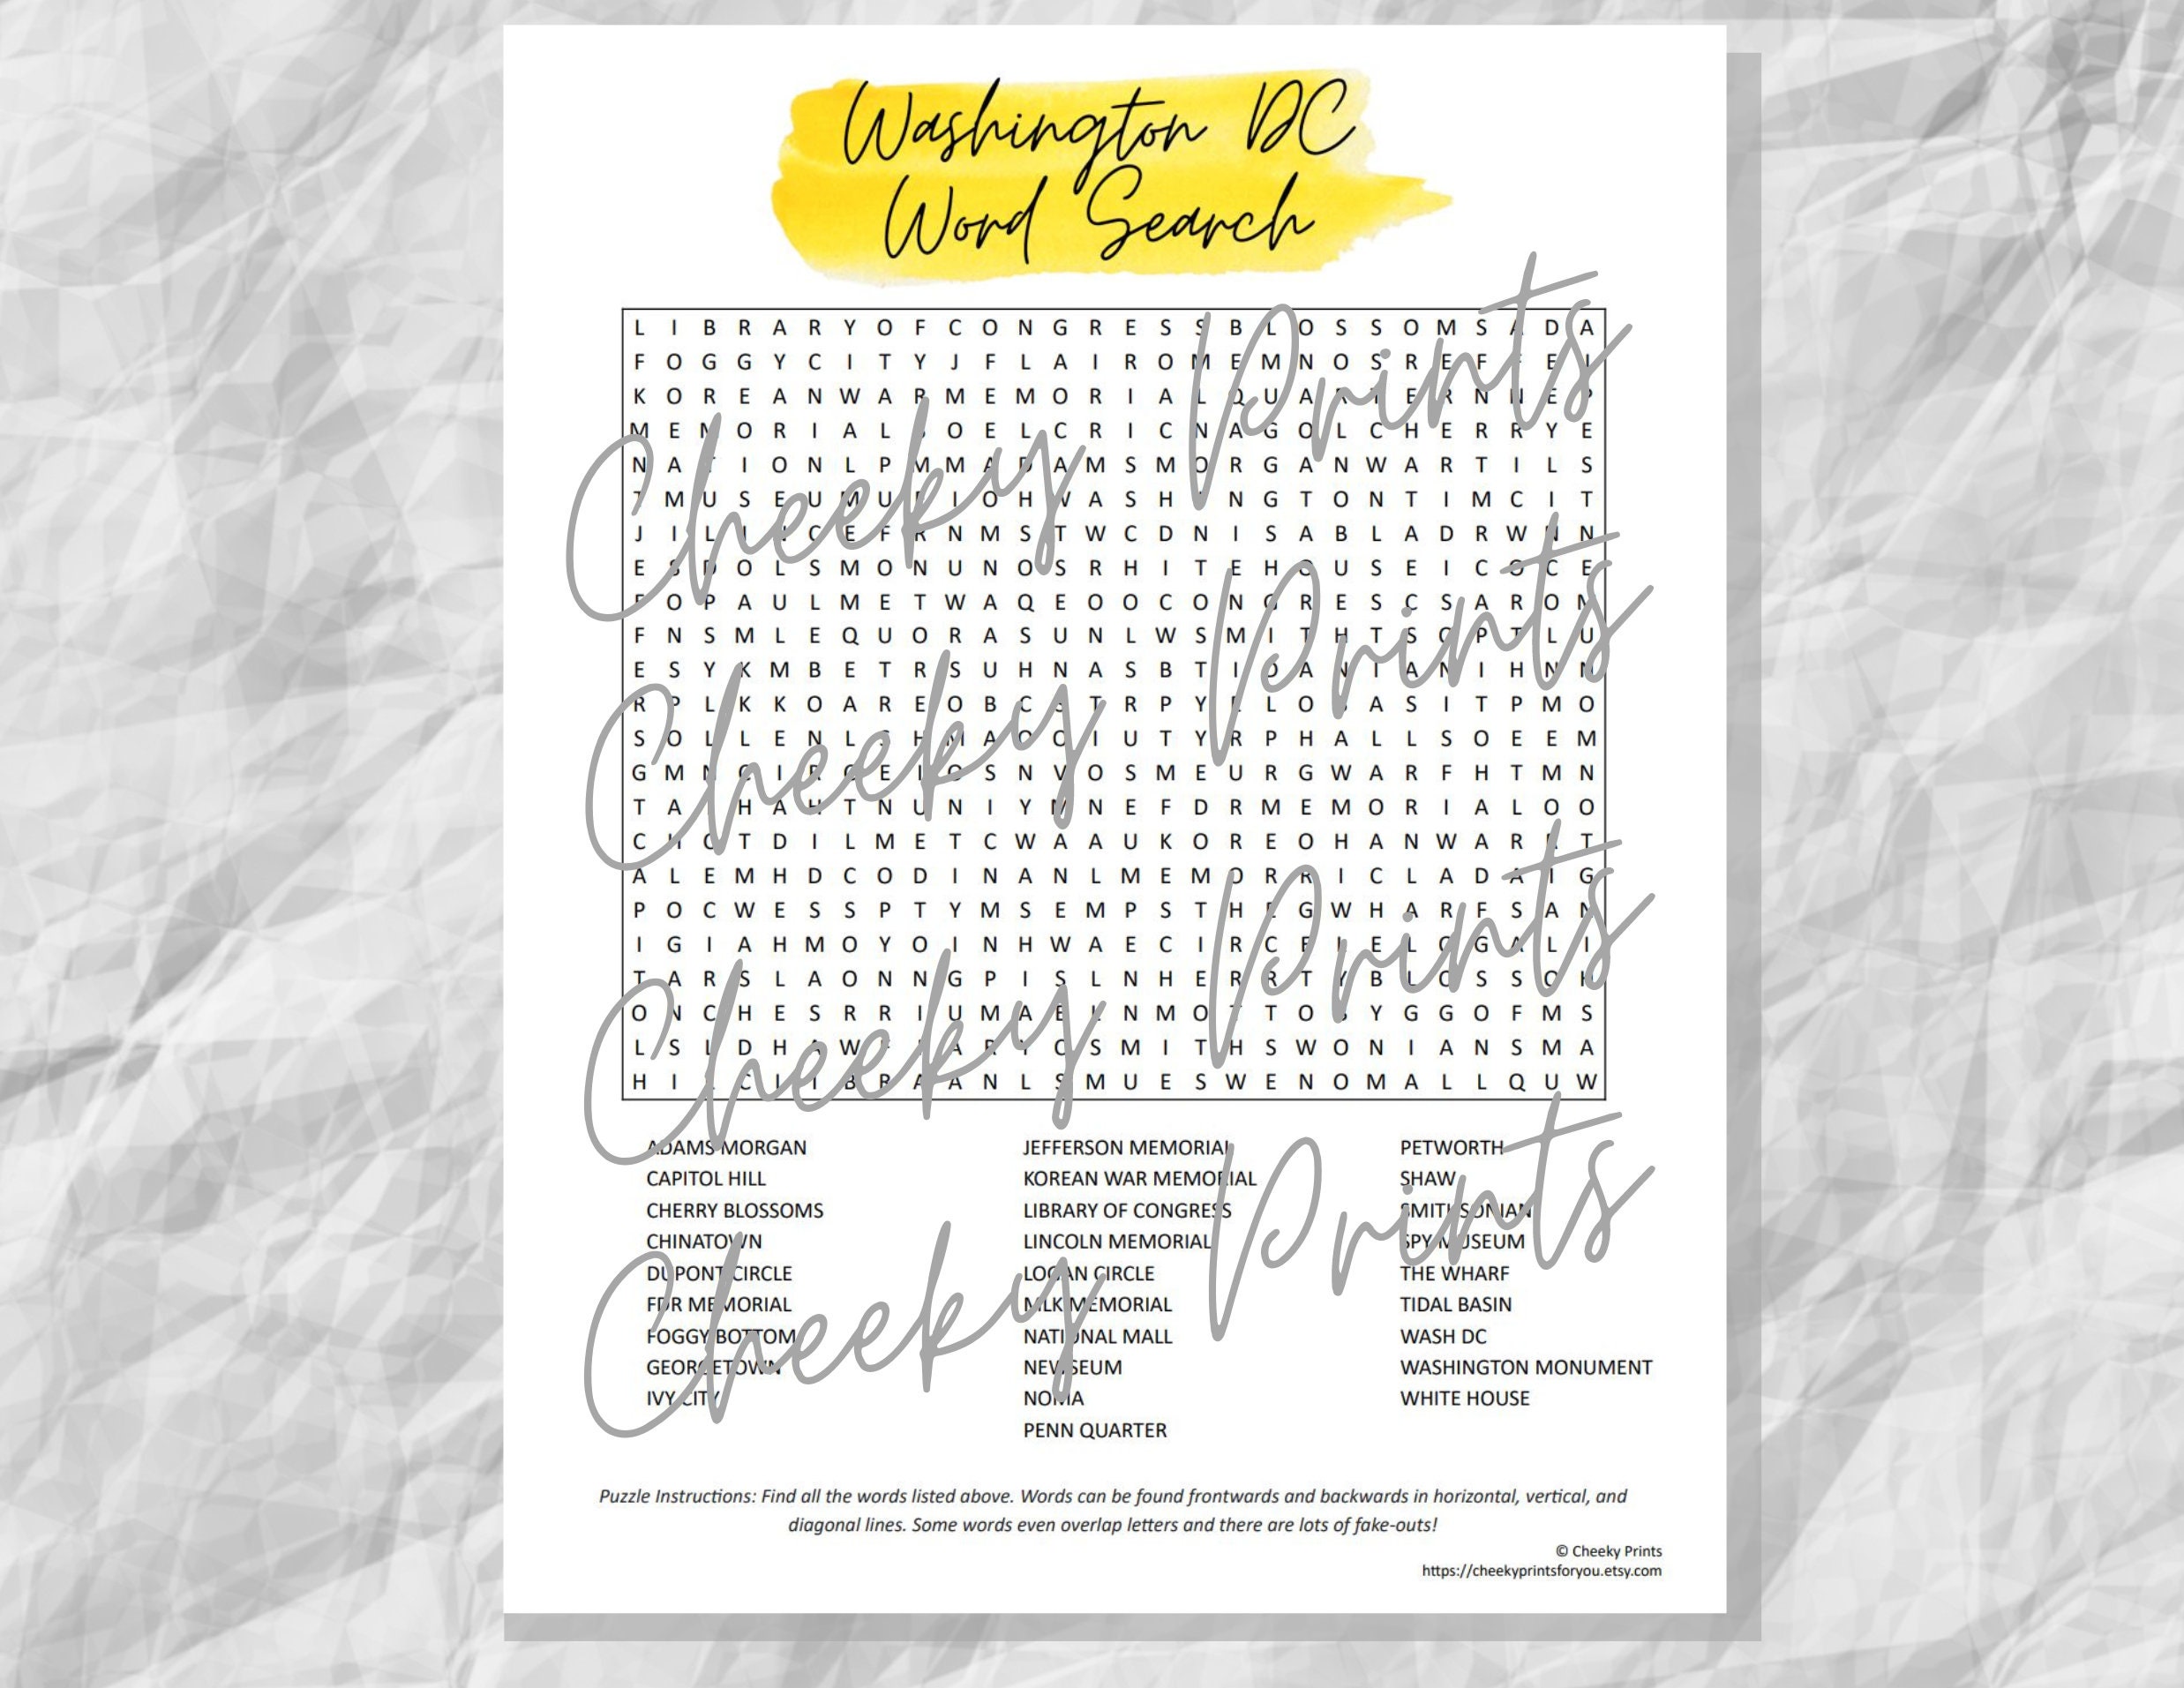 Washington DC
Word Search
L I B R A R Y O F C O N G R E S S B L O S S O M S A D A
F O G G Y C I T Y J F L A I R O M E M N O S R E F F E J
K O R E A N W A R M E M O R I A L Q U A R T E R N N E P
M E M O R I A L O E L C R I C N A G O L C H E R R Y E
N A T I O N L P M M A D A M S M O R G A N W A R T I L S
T M U S E U M U I O H W A S H I N G T O N T I M C I T
J I L I C E F R N M S T W C D N I S A B L A D R W N N
E S D O L S M O N U N O S R H I T E H O U S E I C O C E
F O P A U L M E T W A Q E O O C O N G R E S C S A R O M
F N S M L E Q U O R A S U N L W S M I T H T S O P T L U
E S Y K M B E T R S U H N A S B T I D A N I A N I H N N
R P L K K O A R E O B C S T R P Y L O A S I T P M O
S O L L E N L S H M A O O I U T Y R P H A L L S O E E M
G M N C I R C E I O S N V O S M E U R G W A R F H T M N
T A H A H T N U N I Y M N E F D R M E M O R I A L O O
C H O T D I L M E T C W A A U K O R E O H A N W A R T
A L E M H D C O D I N A N L M E M O R R I C L A D A I G
P O C W E S S P T Y M S E M P S T H E G W H A R F S A N
I G I A H M O Y O I N H W A E C I R C E L E L O G A L I
T A R S L A O N N G P I S L N H E R R T Y B L O S S O H
O N C H E S R R I U M A E N M O T T O B Y G G O F M S
L S L D H A W A R Y O S M I T H S W O N I A N S M A
H I C L I B R A A N L S M U E S W E N O M A L L Q U W
ADAMS MORGAN
CAPITOL HILL
CHERRY BLOSSOMS
CHINATOWN
DUPONT CIRCLE
FDR MEMORIAL
FOGGY BOTTOM
GEORGETOWN
IVY CITY
JEFFERSON MEMORIAL
KOREAN WAR MEMORIAL
LIBRARY OF CONGRESS
LINCOLN MEMORIAL
LOGAN CIRCLE
MLK MEMORIAL
NATIONAL MALL
NEWSEUM
NOMA
PENN QUARTER
PETWORTH
SHAW
SMITHSONIAN
SPY MUSEUM
THE WHARF
TIDAL BASIN
WASH DC
WASHINGTON MONUMENT
WHITE HOUSE
Puzzle Instructions: Find all the words listed above. Words can be found frontwards and backwards in horizontal, vertical, and
diagonal lines. Some words even overlap letters and there are lots of fake-outs!
© Cheeky Prints
https://cheekyprintsforyou.etsy.com
Cheeky Prints
Cheeky Prints
Cheeky Prints
Cheeky Prints